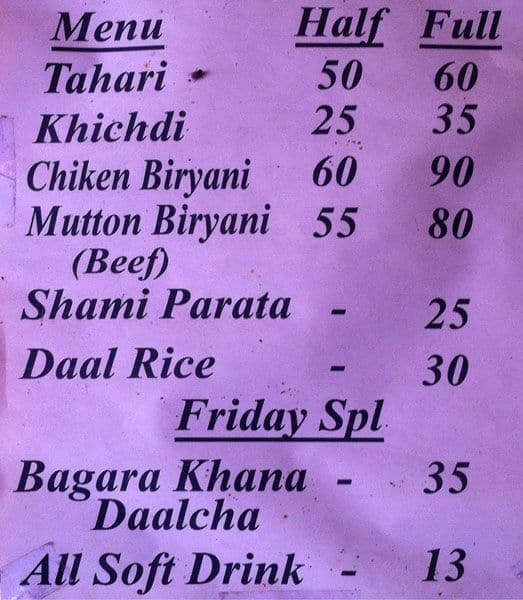 Menu Half Full
Tahari 50 60
Khichdi 25 35
Chiken Biryani 60 90
Mutton Biryani 55 80
(Beef)
Shami Parata - 25
Daal Rice - 30
Friday Spl
Bagara Khana - 35
Daalcha
All Soft Drink - 13